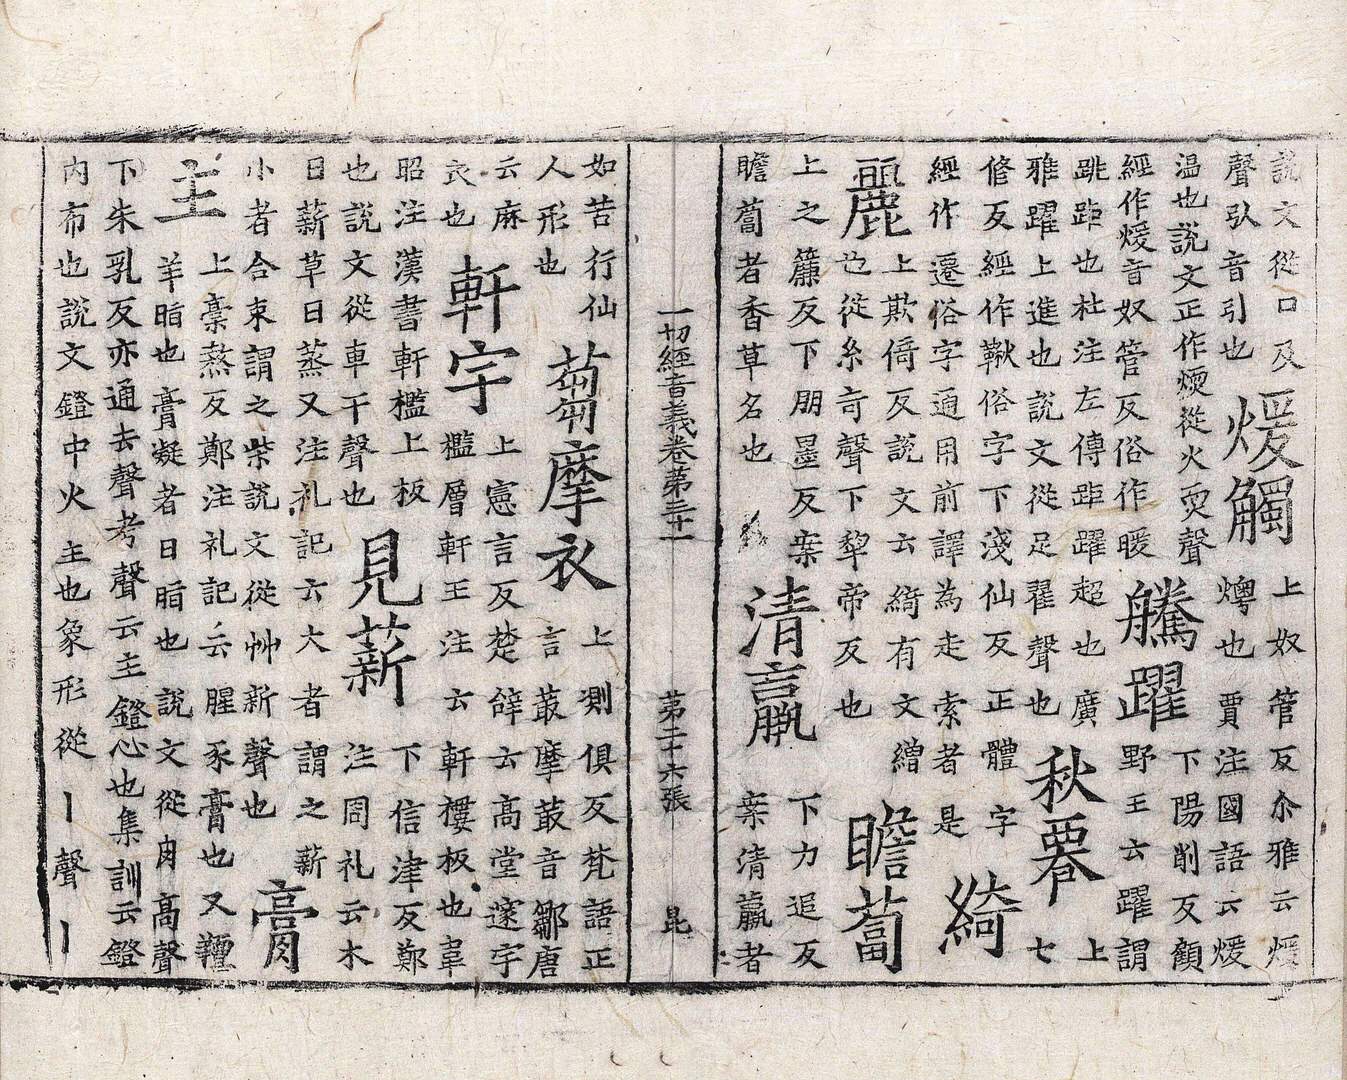 說文從口及
聲弘音引也
煖觸
上奴管反尒雅云煖
燠也賈注國語云煖
温也說文正作煗從火耎聲
經作煖音奴管反俗作暖
騰躍
下陽削反顧
野王云躍謂
跳距也杜注左傳距躍超也廣
雅躍上進也說文從足翟聲也
秋䙴
上
七
脩反經作鞦俗字下淺仙反正體字
經作遷俗字通用前譯為走索者是
綺
麗
上欺倚反說文云綺有文繒
也從糸奇聲下犂帝反也
瞻蔔
上之簾反下朋墨反案
瞻蔔者香草名也
清羸
下力追反
案清羸者
一切經音義卷第三十一 第二十六張 昆
如苦行仙
人形也
蒭摩衣
上測俱反梵語正
言菆摩菆音鄒唐
云麻
衣也
軒宇
上憲言反楚辝云高堂邃宇
檻層軒王注云軒樓板也韋
昭注漢書軒檻上板
也說文從車干聲也
見薪
下信津反鄭
注周礼云木
曰薪草曰蒸又注礼記云大者謂之薪
小者合束謂之柴說文從艸新聲也
膏
主
上稾熬反鄭注礼記云腥豕膏也又
羊脂也膏凝者曰脂也說文從肉高聲
下朱乳反亦通去聲考聲云主鐙心也集訓云鐙
內布也說文鐙中火主也象形從丨聲丨